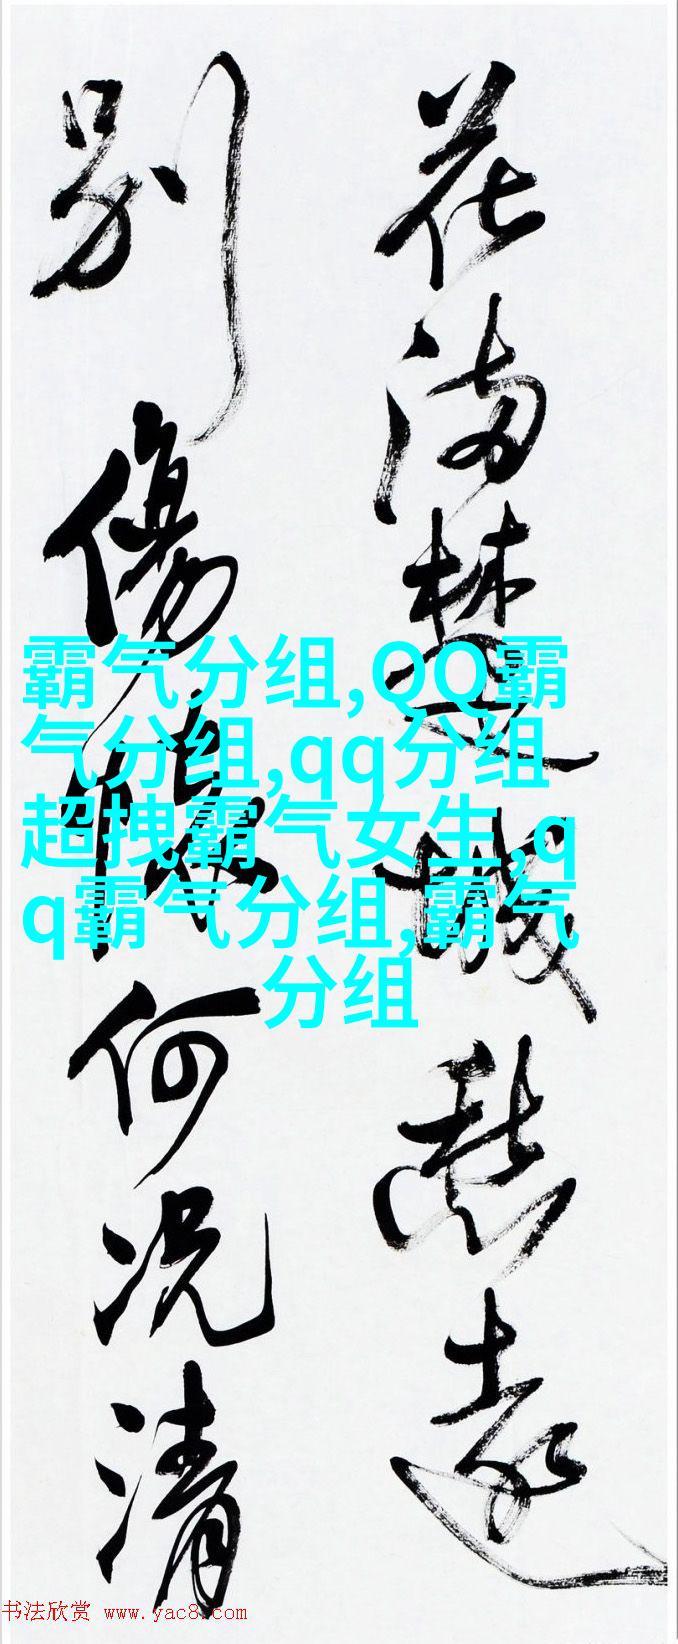 花滿楚城愁遠
别傷懷何況清
霸气分组,QQ霸
气分组,qq分组
超拽霸气女生,q
q霸气分组,霸气
分组
书法欣赏 www.yac8.com